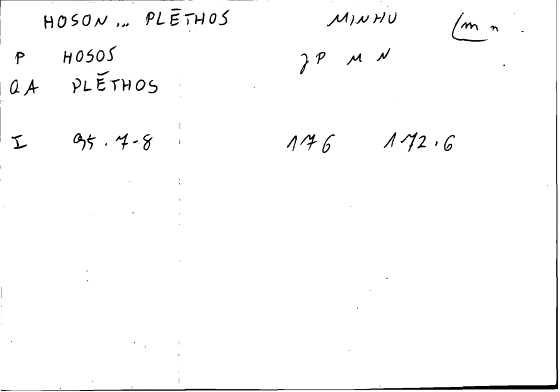 HOSON ... PLĒTHOS MINHU (m n
P HOSOS J P M N
QA PLĒTHOS
I 95.7-8 176 172.6